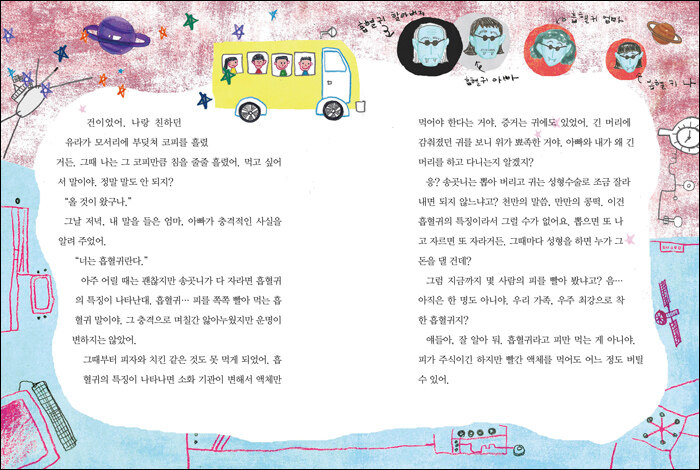 흡혈귀 할아버지
흡혈귀 아빠
흡혈귀 엄마
흡혈귀 나
전이었어. 나랑 친하던
유라가 모서리에 부딪쳐 코피를 흘렸
거든. 그때 나는 그 코피만큼 침을 줄줄 흘렸어. 먹고 싶어
서 말이야. 정말 말도 안 되지?
“올 것이 왔구나.”
그날 저녁, 내 말을 들은 엄마, 아빠가 충격적인 사실을
알려 주었어.
“너는 흡혈귀란다.”
아주 어릴 때는 괜찮지만 송곳니가 다 자라면 흡혈귀
의 특징이 나타난대. 흡혈귀… 피를 쪽쪽 빨아 먹는 흡
혈귀 말이야. 그 충격으로 며칠간 앓아누웠지만 운명이
변하지는 않았어.
그때부터 피자와 치킨 같은 것도 못 먹게 되었어. 흡
혈귀의 특징이 나타나면 소화 기관이 변해서 액체만
먹어야 한다는 거야. 증거는 귀에도 있었어. 긴 머리에
감춰졌던 귀를 보니 위가 뾰족한 거야. 아빠와 내가 왜 긴
머리를 하고 다니는지 알겠지?
응? 송곳니는 뽑아 버리고 귀는 성형수술로 조금 잘라
내면 되지 않느냐고? 천만의 말씀, 만만의 콩떡. 이건
흡혈귀의 특징이라서 그럴 수가 없어요. 뽑으면 또 나
고 자르면 또 자라거든. 그때마다 성형을 하면 누가 그
돈을 댈 건데?
그럼 지금까지 몇 사람의 피를 빨아 봤냐고? 음…
아직은 한 명도 아니야. 우리 가족, 우주 최강으로 착
한 흡혈귀지?
얘들아, 잘 알아 둬. 흡혈귀라고 피만 먹는 게 아니야.
피가 주식이긴 하지만 빨간 액체를 먹어도 어느 정도 버틸
수 있어.